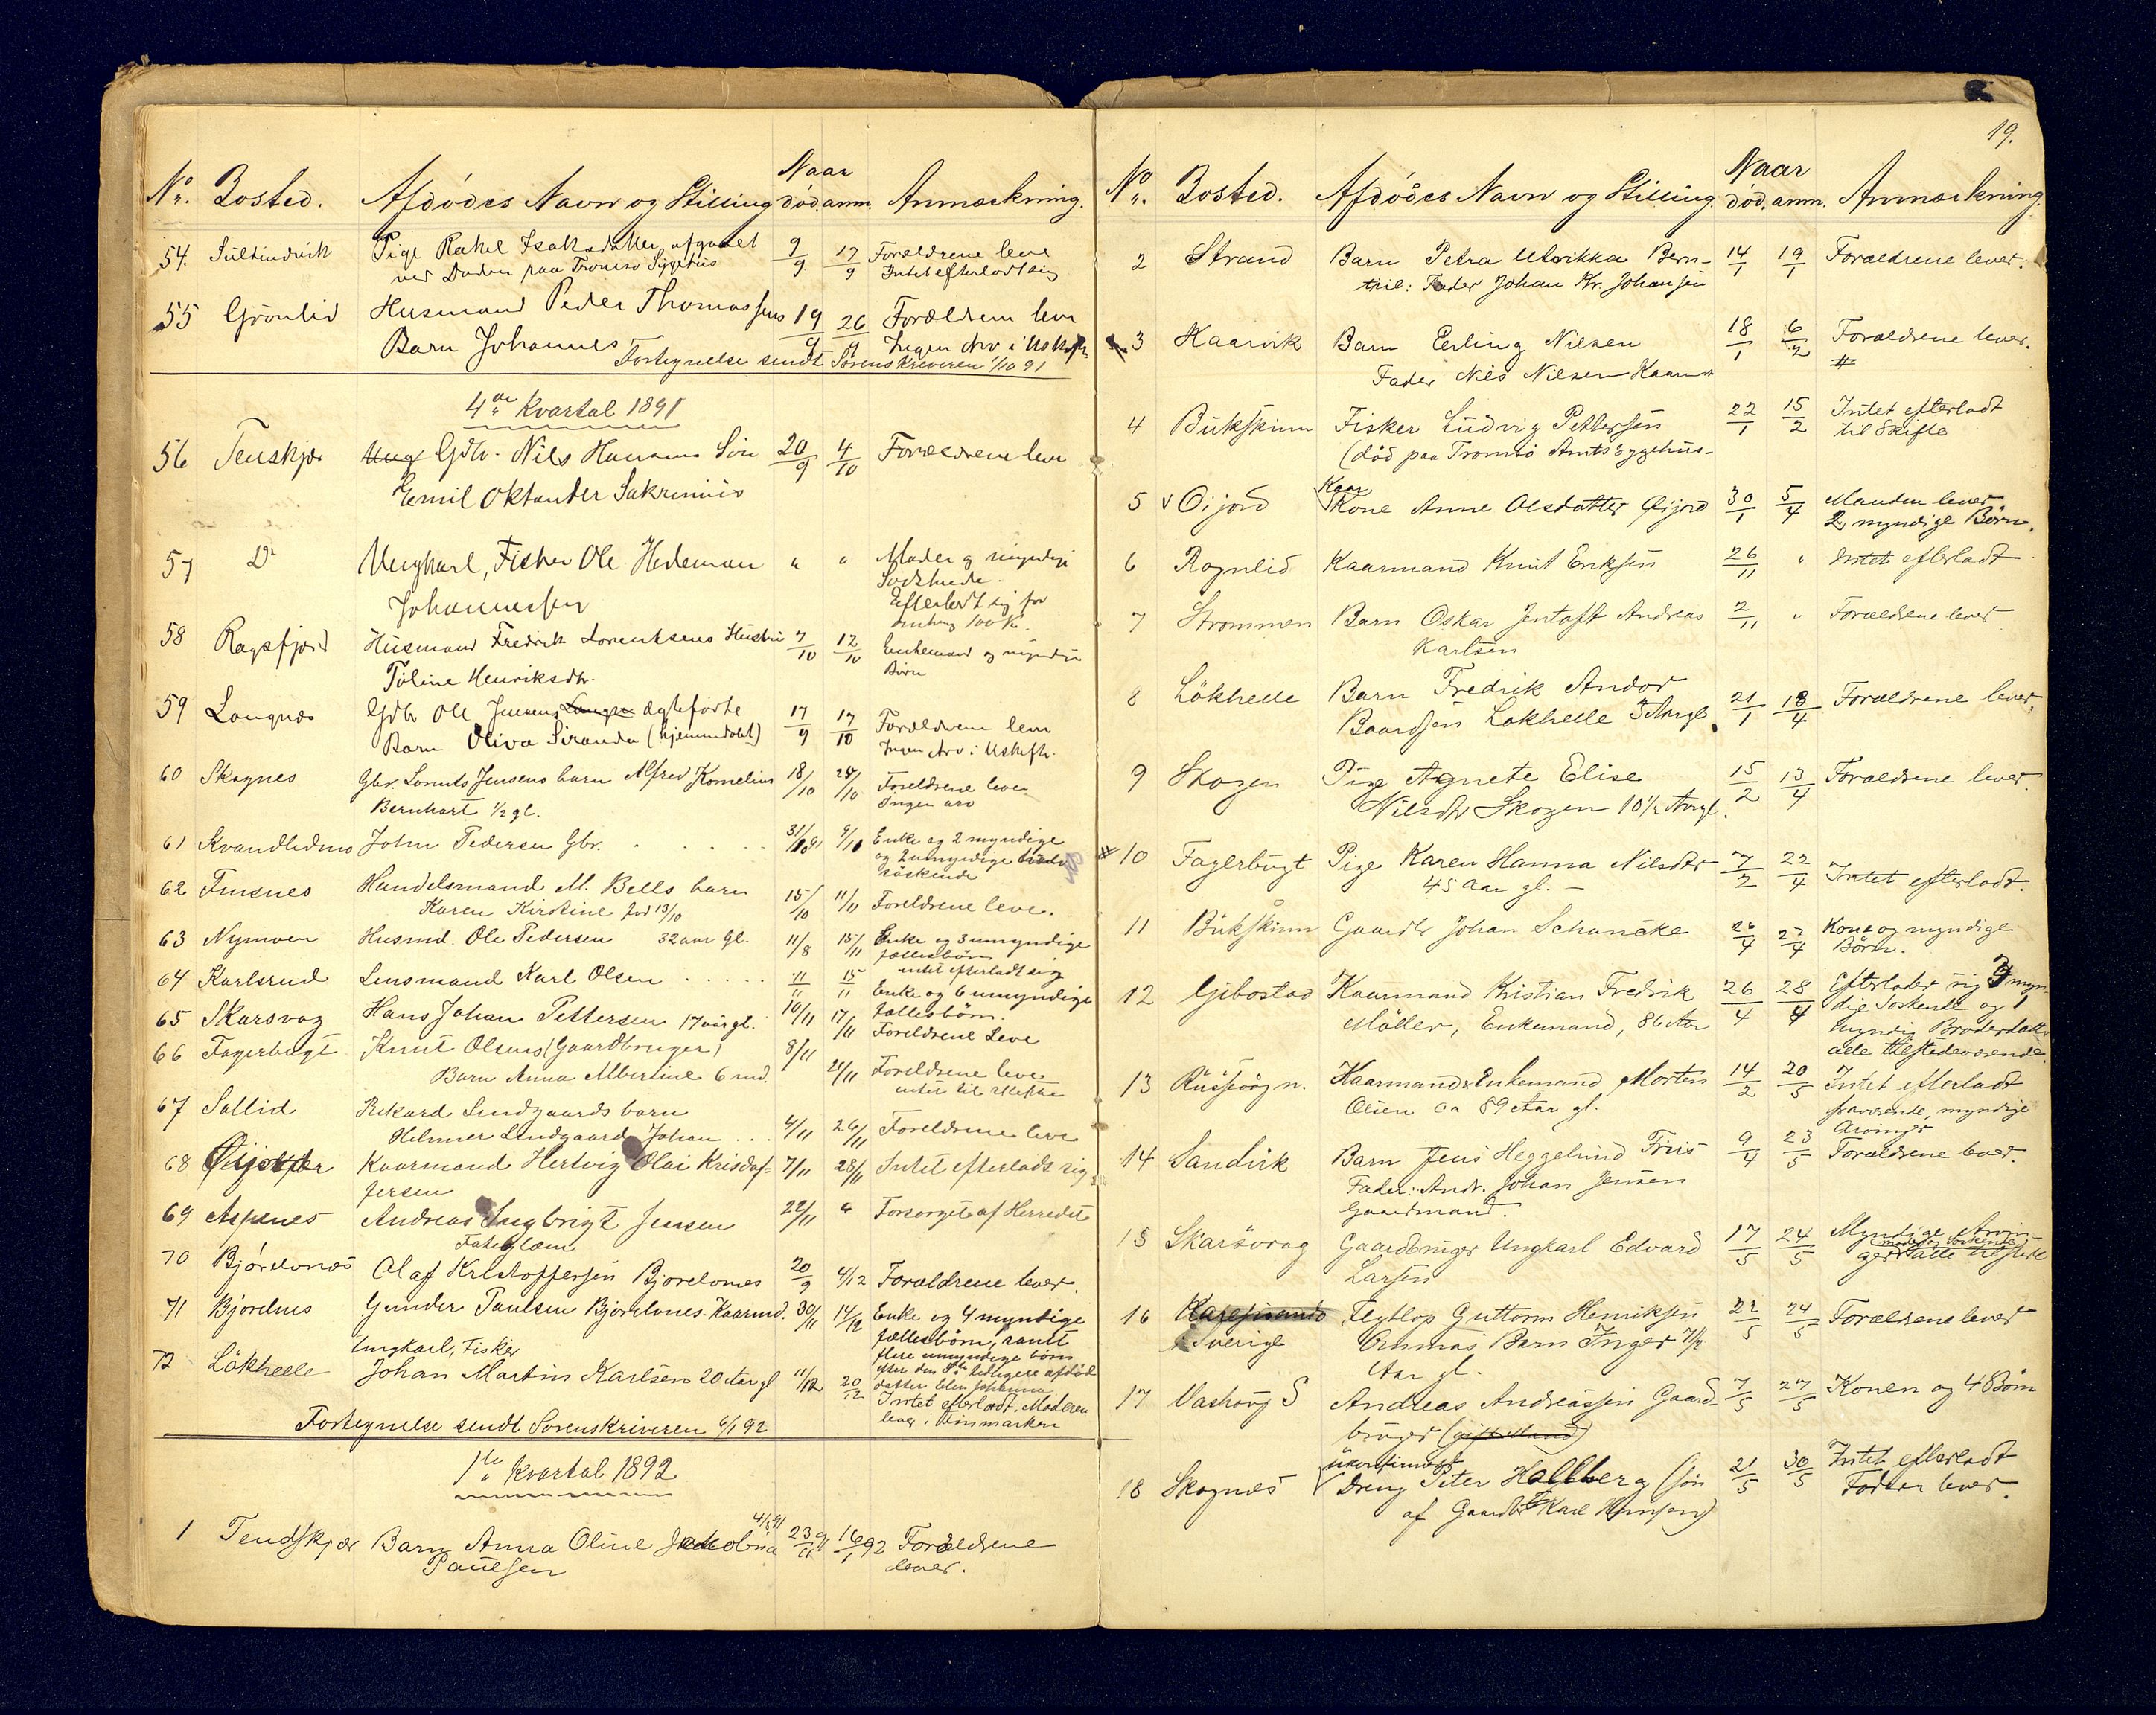 No. Bosted. Afdödes Navn og Stilling Naar död. anm. Anmærkning.
54. Pige Rakel Isaksdatter 9/9 17/9 Forældrene leve
ved Döden paa Tromsö Sygehus Intet efterladt sig
55 Grönlid Husmand Peder Thomassens 19/9 26/9 Forældrene leve
Barn Johannes Ingen Arv i
Fortegnelse sendt Sorenskriveren 1/10 91
4de Kvartal 1891
56 Tenskjær Ung Gdbr. Nils Hansens Sön 20/9 4/10 Forældrene leve
Emil Oktander
57 Do Ungkarl, Fisker Ole Hedeman " " Moder og myndige
Johannessen Södskende.
Efterladt sig for
omkring 100 Kr.
58 Husmand Fredrik Lorentsens Hustru 7/10 12/10 Enkemand og myndige
Henriksdtr. Börn
59 Langnes Gdbr Ole Jensens ægteförte 17/9 17/10 Forældrene leve
Barn Oliva (hjemmedöbt) Ingen Arv i
60 Skognes Gbr. Jensens barn Alfred Kornelius 18/10 25/10 Foreldrene leve
Bernhart 1/2 gl. Ingen arv
61 John Pedersen Gbr. 31/10 91 9/10 Enke og 2 myndige
og 2 umyndige
söskende
62 Finsnes Handelsmand M. Bells barn 15/10 11/11 Foreldrene leve.
Karen Kirstine fød 13/10
63 Nymoen Husmd. Ole Pedersen 32 aar gl. 11/8 15/11 Enke og 3 umyndige
fællesbörn
intet efterladt sig
64 Karlsrud Lensmand Karl Olsen 11/11 15/11 Enke og 6 umyndige
fællesbörn.
65 Skarsvag Hans Johan Pettersen 17 aar gl. 10/11 17/11 Foreldrene Leve
66 Fagerbugt Knut Olsens (Gaardbruger) 8/11 21/11 Foreldrene leve
Barn Anna Albertine 6 md. intet til Skifte
67 Sollid Rikard Lindgaards barn
Helmer Lindgaard Johan 4/11 26/11 Foreldrene leve
68 Kaarmand Hertvig Olai 7/11 28/11 Intet efterlads sig
fersen
69 Aspenes Andreas Ingbrigt Jensen 22/11 " Forsorget af Herredet
Fateglem
70 Bjorelvnes Olaf Kristoffersen Bjorelvnes 20/9 4/12 Forældrene lever.
71 Bjorelnes Gunder Paulsen Bjorelvnes. Kaarmd. 30/11 14/12 Enke og 4 myndige
fællesbörn, samt
flere umyndige börn
efter den tidligere afdöd
datter Elen Johanna
Ungkarl, Fisker
72 Lökhelle Johan Martin Karlsen 20 Aar gl 11/12 20/12 Intet efterladt. Moderen
lever i Finmarken
Fortegnelse sendt Sorenskriveren 6/1 92
1ste Kvartal 1892
4/5 91
1 Tendskjær Barn Anna Oline Jakobna 23/11 91 16/1 92 Forældrene
Paulsen lever.
19.
No. Bosted. Afdödes Navn og Stilling. Naar död. anm. Anmærkning.
2 Strand Barn Petra Ulrikka Bern- 14/1 19/1 Forældrene lever.
Fader Johan Kr. Johansen
3 Haarvik Barn Erling Nilsen 18/1 6/2 Forældrene lever.
Fader Nils Nilsen
4 Bukskinn Fisker Ludvig Pettersen 22/1 15/2 Intet efterladt
(död paa Tromsö Amts Sygehus- til Skifte
Kaar
5 Öijord Kone Anne Olsdatter Öijord 30/1 5/4 Manden lever
2 myndige Börn.
6 Rognlid Kaarmand Knut Eriksen 26/11 " Intet efterladt
7 Strommen Barn Oskar Jentoft Andreas 2/11 " Forældrene lever
Karlsen
8 Lökhelle Barn Fredrik Andor 21/1 13/4 Forældrene lever.
Baardsen Lökhelle
9 Skogen Pige Agnete Elise 15/2 13/4 Forældrene lever.
Nilsdtr Skogen 10 1/2 Aar gl.
10 Fagerbugt Pige Karen Hanna Nilsdtr 7/2 22/4 Intet efterladt.
45 Aar gl. -
11 Bukskinn Gaardbr Johan Schancke 26/4 27/4 Kone og myndige
Börn.
12 Gibostad Kaarmand Kristian Fredrik 26/4 28/4 Efterlader sig myn-
Möller, Enkemand, 86 Aar dige Söskende og 1
myndig
alle tilstedeværende.
13 Kaarmand & Enkemand Morten 14/2 20/5 Intet efterladt
Olsen ca 89 Aar gl. fraværende, myndige
Arvinger
14 Sandvik Barn Jens Heggelund Friis 9/4 23/5 Forældrene lever.
Fader: Andr. Johan Jensen
Gaardmand.
15 Skarsvaag Gaardbruger Ungkarl Edvard 17/5 24/5 Myndige Arvin-
Larsen ger alle tilstede
16 Karesuando Flytlap Guttorm Henriksen 22/5 24/5 Forældrene lever
i Sverige Barn Inger 7 1/2
Aar gl.
17 Vashoug S Andreas Andreassen Gaard- 7/5 27/5 Konen og 4 Börn
bruger (gift Mand)
ukonfirmert
18 Skognes Dreng Peter Hallberg (sön 21/5 30/5 Intet efterladt
af Gaardbr Karl Hansen) Fader lever.